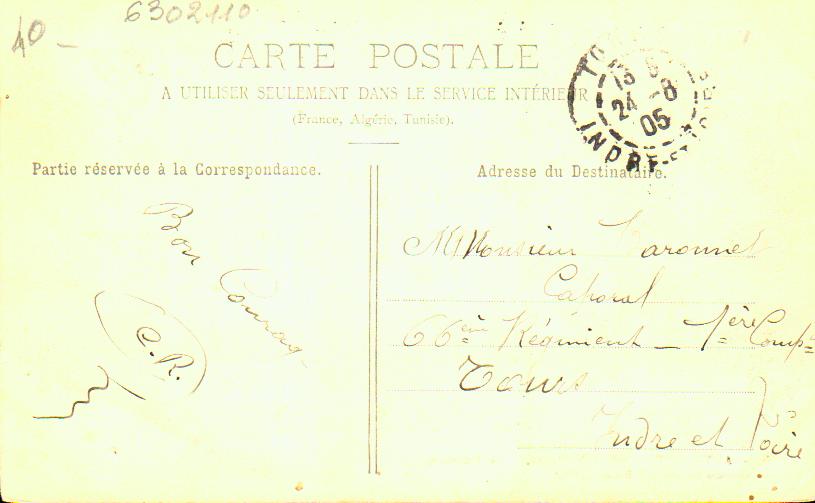 40 -
6302110
CARTE POSTALE
A UTILISER SEULEMENT DANS LE SERVICE INTÉRIEUR
(France, Algérie, Tunisie).
24 -8
05
INDRE
Partie réservée à la Correspondance.
Bon Courag
C.R.
Adresse du Destinataire.
Monsieur
Caporal
66ème Régiment - 1ère Comp
Tours
Indre et Loire